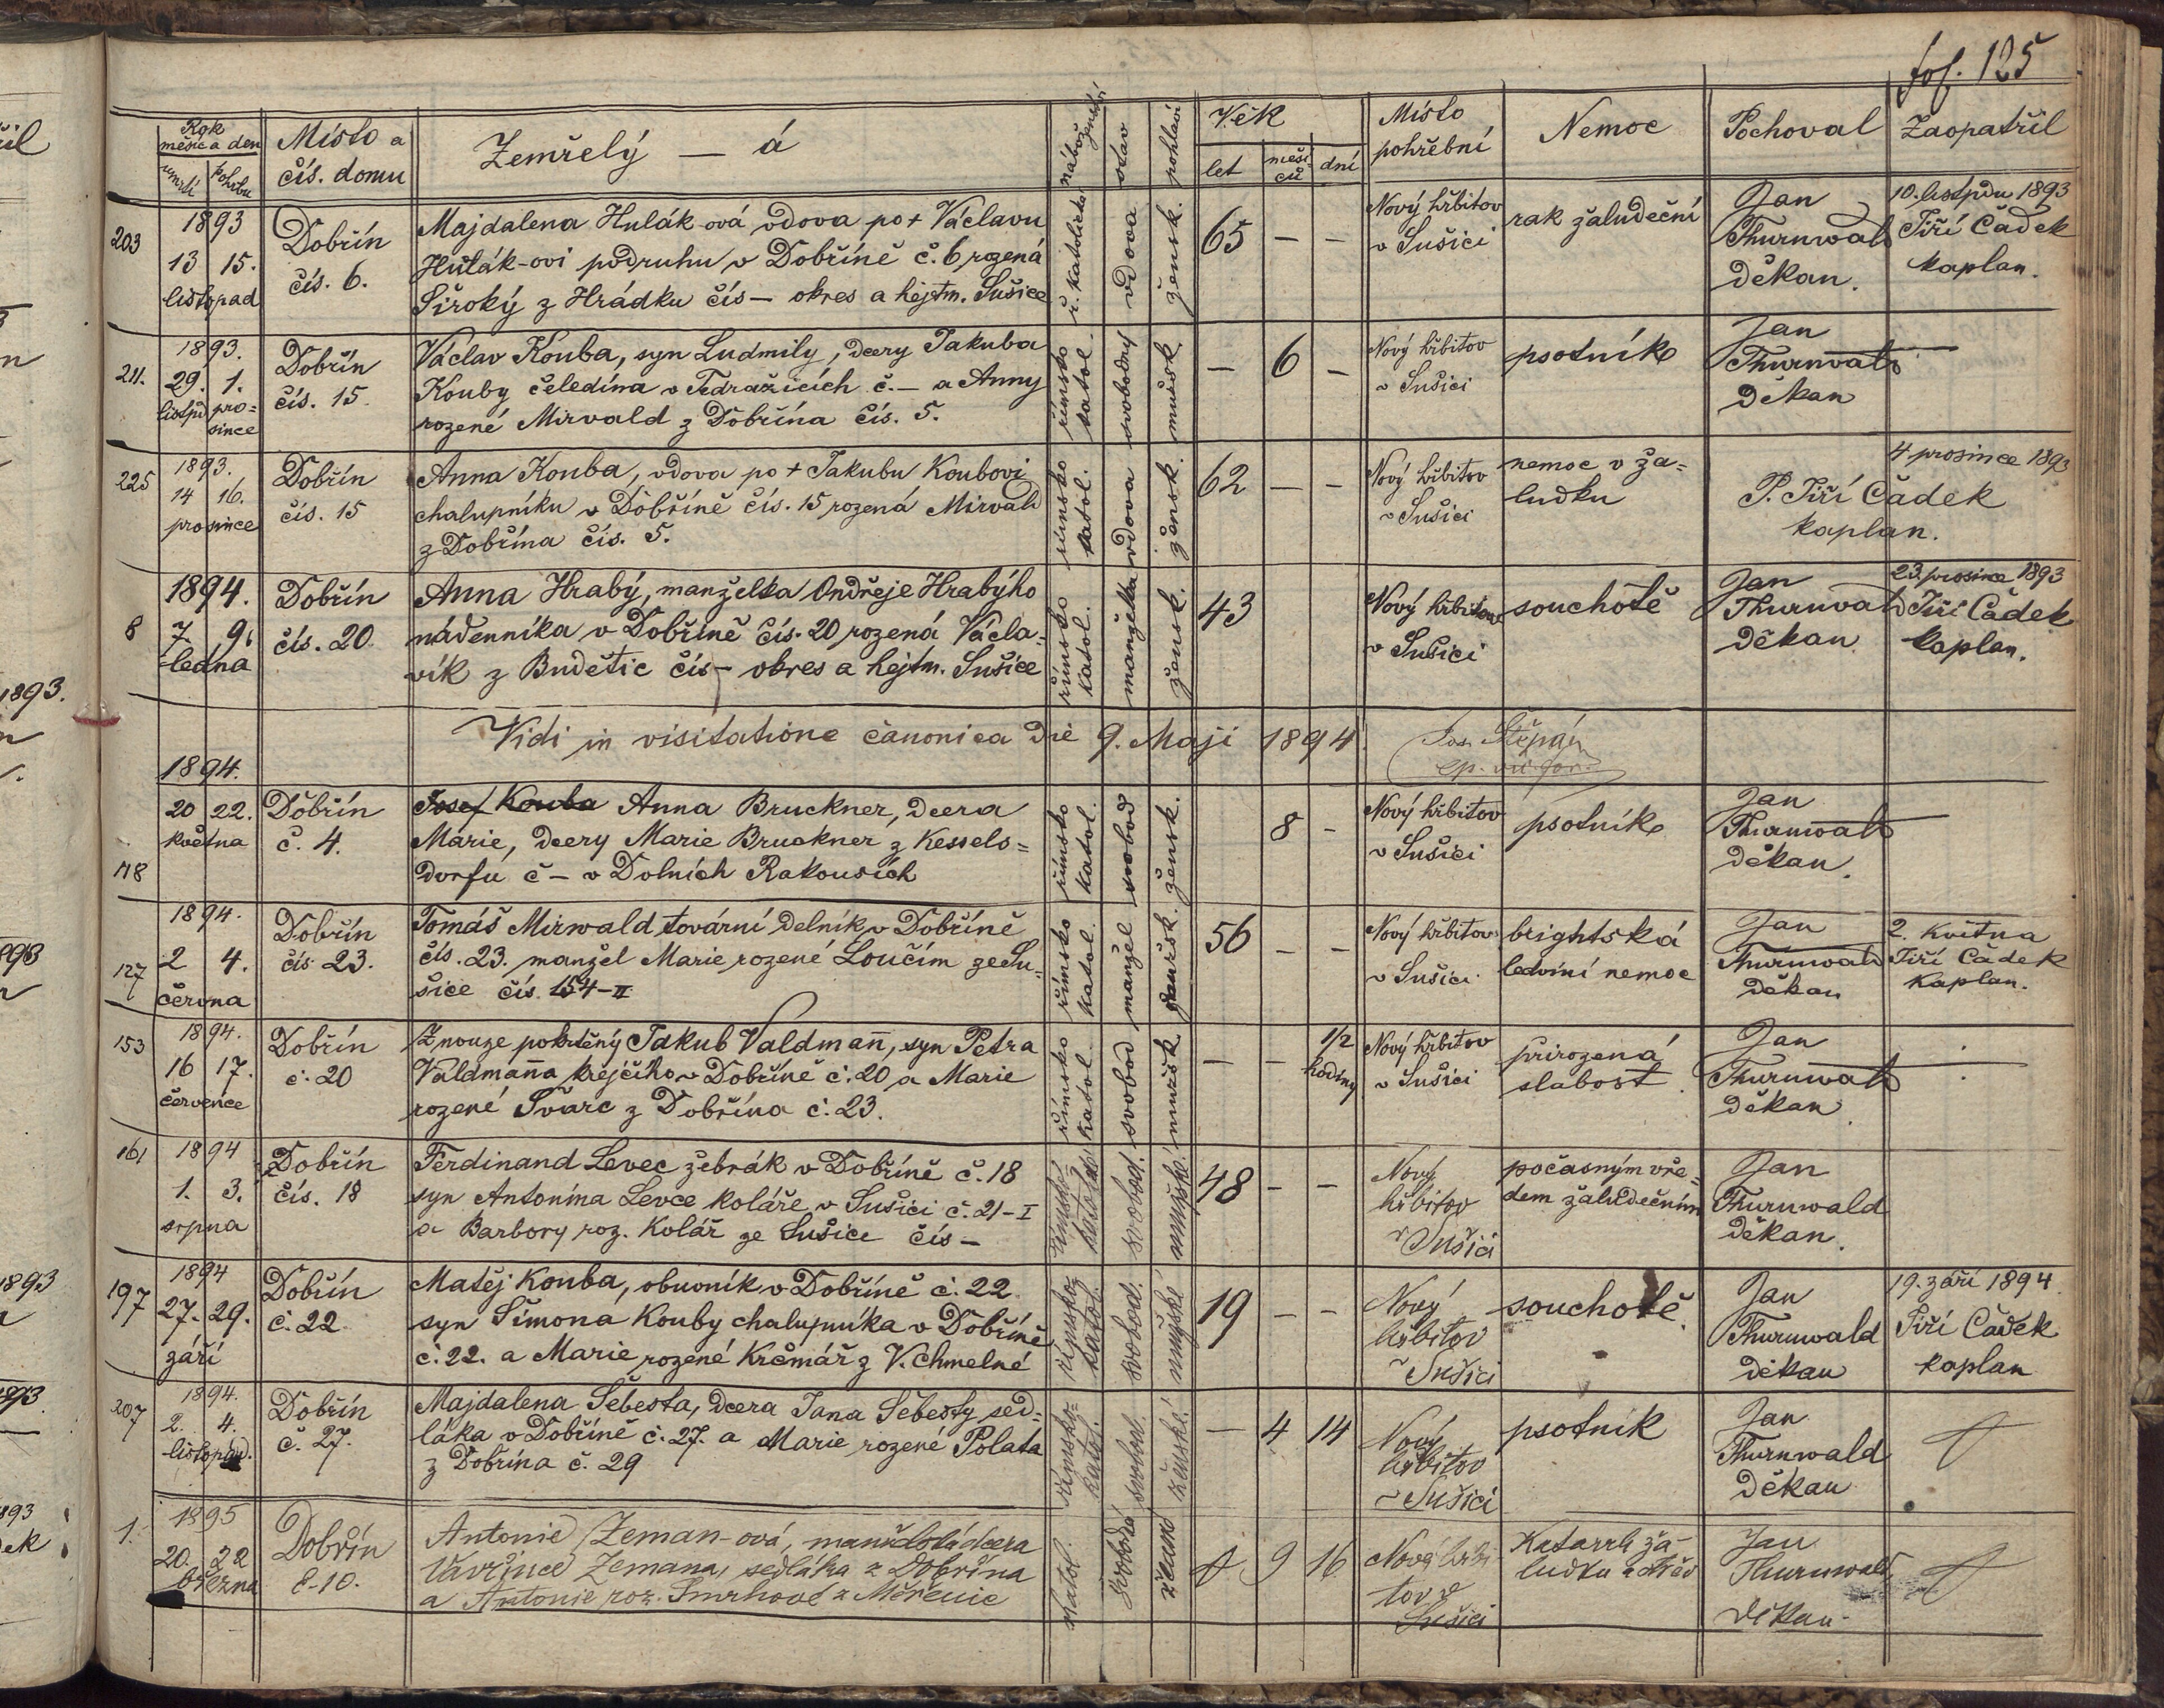 fol. 125
Rok měsíc a den
úmrtí pohřbu
Místo a čís. domu
Zemřelý — á
nábo- ženství
stav
pohlaví
Věk
let měsí- ců dní
Místo pohřební
Nemoc
Pochoval
Zaopatřil
203
1893
13 15.
listopad
Dobřín
čís. 6.
Majdalena Hulák-ová vdova po + Václavu
Hulák-ovi podruhu v Dobříně č. 6 rozená
Široký z Hrádku čís — okres a hejtm. Sušice
ř. katolické
vdova
žensk.
65 — —
Nový hřbitov
v Sušici
rak žaludeční
Jan
Thurnwald
děkan.
10. listpdu 1893
Jiří Čadek
kaplan.
211.
1893.
29. 1.
listpd pro=
since
Dobřín
čís. 15.
Václav Kouba, syn Ludmily, dcery Jakuba
Kouby čeledína v Tedražicích č. — a Anny
rozené Mirvald z Dobřína čís. 5.
římsko
katol.
svobodný
mužsk.
— 6 —
Nový hřbitov
v Sušici
psotník
Jan
Thurnwald
děkan
225
1893.
14 16.
prosince
Dobřín
čís. 15
Anna Kouba, vdova po + Jakubu Koubovi
chalupníku v Dobříně čís. 15 rozená Mirvald
z Dobřína čís. 5.
římsko
katol.
vdova
žensk.
62 — —
Nový hřbitov
v Sušici
nemoc v ža=
ludku
P. Jiří Čadek
kaplan.
4 prosince 1893
8
1894.
7 9.
ledna
Dobřín
čís. 20.
Anna Hrabý, manželka Ondřeje Hrabýho
nádenníka v Dobříně čís. 20 rozená Václa=
vík z Budětic čís — okres a hejtm. Sušice
římsko
katol.
manželka
žensk.
43
Nový hřbitov
v Sušici
souchotě
Jan
Thurnwald
děkan
23. prosince 1893
Jiří Čadek
kaplan.
Vidi in visitatione canonica die 9. Maji 1894.
Jos. Štěpán
ep. vic. for.
1894.
20 22.
května
118
Dobřín
č. 4.
Josef Kouba Anna Bruckner, dcera
Marie, dcery Marie Bruckner z Kessels=
dorfu č — v Dolních Rakousích
římsko
katol.
svobod
žensk.
8 —
Nový hřbitov
v Sušici
psotník
Jan
Thurnwald
děkan.
127
1894.
2 4.
června
Dobřín
čís 23.
Tomáš Mirwald tovární dělník v Dobříně
čís. 23. manžel Marie rozené Loučím ze Su=
šice čís. 154-II
římsko
katol.
manžel
mužsk.
56 — —
Nový hřbitov
v Sušici
brightská
ledviní nemoc
Jan
Thurnwald
děkan
2. května
Jiří Čadek
kaplan.
153
1894.
16 17.
července
Dobřín
č. 20
Z nouze pokřtěný Jakub Valdmann, syn Petra
Valdmanna krejčího v Dobříně č. 20 a Marie
rozené Švarc z Dobřína č. 23.
římsko
katol.
svobod
mužsk
— — 1/2
hodiny
Nový hřbitov
v Sušici
přirozená
slabost
Jan
Thurnwald
děkan
161
1894
1. 3.
srpna
Dobřín
čís. 18
Ferdinand Levec žebrák v Dobříně č. 18
syn Antonína Levce koláře v Sušici č. 21-I
a Barbory roz. Kolář ze Sušice čís —
římsko-
katolické
svobod.
mužské.
48 — —
Nový
hřbitov
v Sušici
počasným vře=
dem žaludečním
Jan
Thurnwald
děkan.
197
1894
27. 29.
září
Dobřín
č. 22.
Matěj Kouba, obuvník v Dobříně č. 22.
syn Šimona Kouby chalupníka v Dobříně
č. 22. a Marie rozené Krčmář z V. Chmelné
římsko-
katol.
svobod.
mužské
19 — —
Nový
hřbitov
v Sušici
souchotě.
Jan
Thurnwald
děkan
19. září 1894
Jiří Čadek
kaplan
207
1894.
2. 4.
listopad.
Dobřín
č. 27.
Majdalena Šebesta, dcera Jana Šebesty sed=
láka v Dobříně č. 27. a Marie rozené Polata
z Dobřína č. 29
římsko-
katol.
svobod.
ženské.
— 4 14
Nový
hřbitov
v Sušici
psotník
Jan
Thurnwald
děkan
1.
1895
20. 22
března
Dobřín
č-10.
Antonie Zeman-ová, manželská dcera
Vavřince Zemana, sedláka z Dobřína
a Antonie roz. Smrhové z Měřenic
katol.
svobodná
ženské
9 16
Nový hřbi-
tov v
Sušici
Katarrh ža-
ludku a střev
Jan
Thurnwald
děkan.